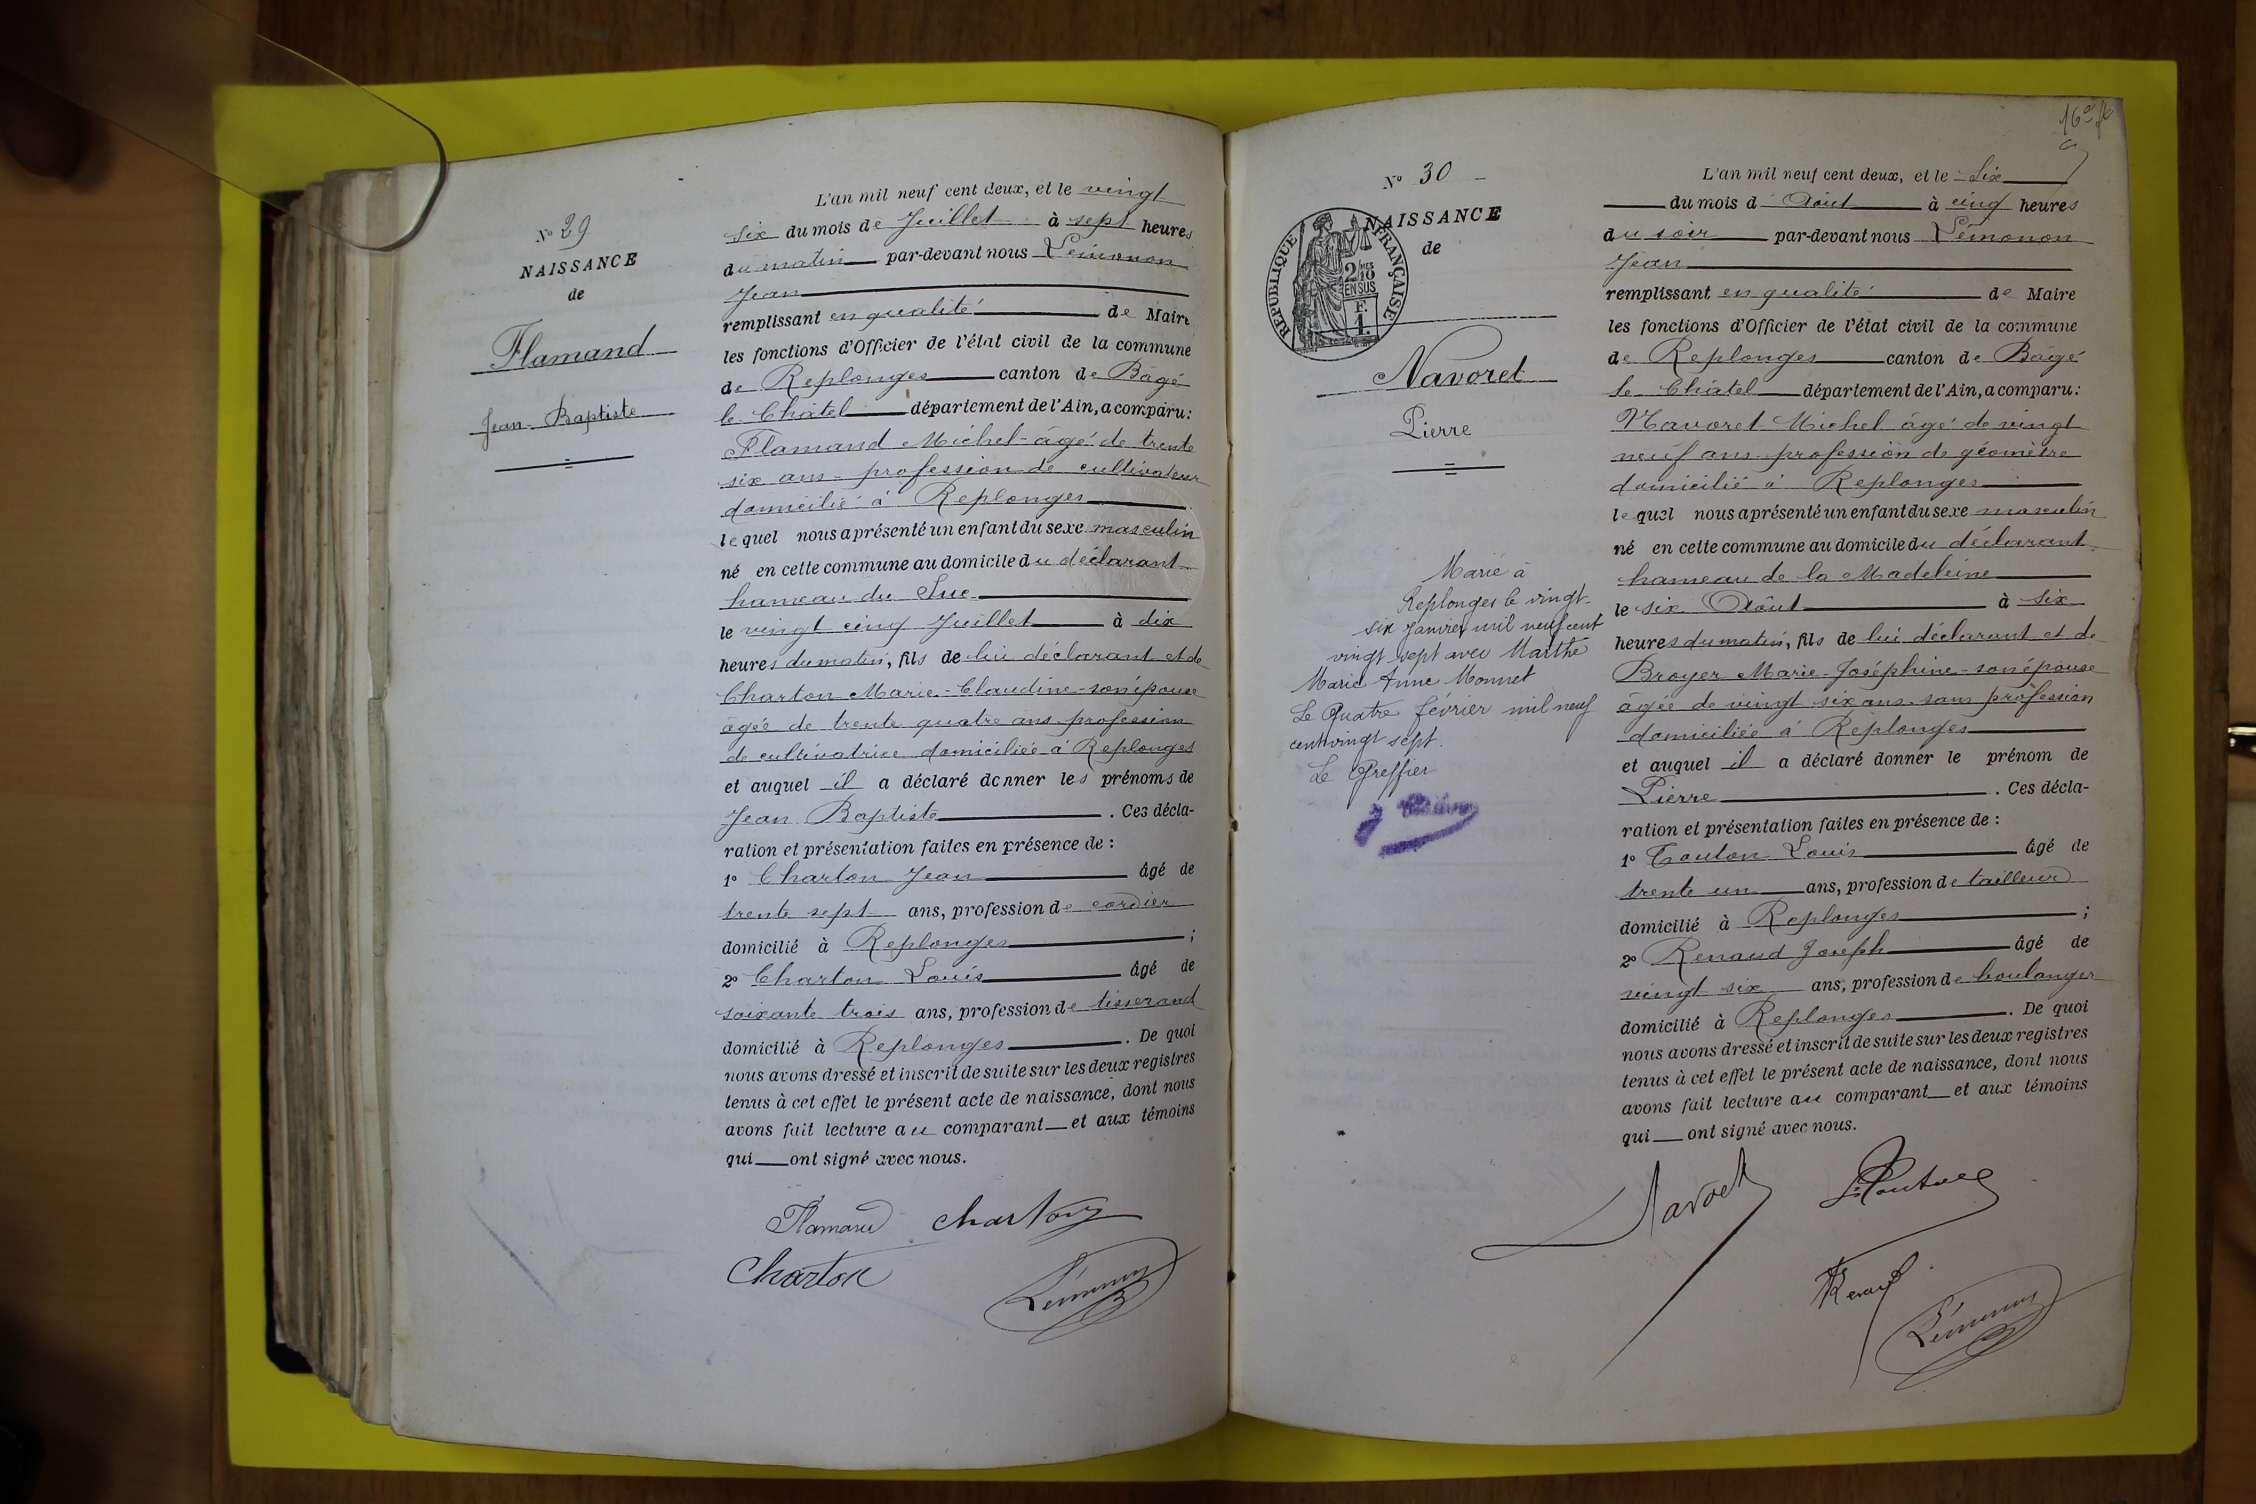 N° 29
NAISSANCE
de
Flamand
Jean-Baptiste
L'an mil neuf cent deux, et le vingt
six du mois de Juillet à sept heures
du matin par-devant nous Lémonon
Jean
remplissant en qualité de Maire
les fonctions d'Officier de l'état civil de la commune
de Replonges canton de Bâgé
le Châtel département de l'Ain, a comparu :
Flamand Michel âgé de trente
six ans profession de cultivateur
domicilié à Replonges
lequel nous a présenté un enfant du sexe masculin
né en cette commune au domicile du déclarant
hameau du
le vingt cinq Juillet à dix
heures du matin, fils de lui déclarant et de
Charton Marie-Claudine son épouse
âgée de trente quatre ans profession
de cultivatrice domiciliée à Replonges
et auquel il a déclaré donner les prénoms de
Jean Baptiste. Ces décla-
ration et présentation faites en présence de :
1° Charton Jean âgé de
trente sept ans, profession de cordier
domicilié à Replonges ;
2° Charton Louis âgé de
soixante trois ans, profession de tisserand
domicilié à Replonges. De quoi
nous avons dressé et inscrit de suite sur les deux registres
tenus à cet effet le présent acte de naissance, dont nous
avons fait lecture au comparant et aux témoins
qui ont signé avec nous.
Flamand Charton
Charton Lémonon
16e
N° 30
NAISSANCE
de
RÉPUBLIQUE FRANÇAISE
2/10
EN SUS
F.
1.
Navoret
Pierre
Marié à
Replonges le vingt-
six janvier mil neuf cent
vingt sept avec Marthe
Marie Anne Monnet
Le Quatre février mil neuf
cent vingt sept.
Le Greffier
L'an mil neuf cent deux, et le six
du mois d Août à cinq heures
du soir par-devant nous Lémonon
Jean
remplissant en qualité de Maire
les fonctions d'Officier de l'état civil de la commune
de Replonges canton de Bâgé
le Châtel département de l'Ain, a comparu :
Navoret Michel âgé de vingt
neuf ans profession de géomètre
domicilié à Replonges
lequel nous a présenté un enfant du sexe masculin
né en cette commune au domicile du déclarant
hameau de la Madeleine
le six Août à six
heures du matin, fils de lui déclarant et de
Broyer Marie-Joséphine son épouse
âgée de vingt six ans sans profession
domiciliée à Replonges
et auquel il a déclaré donner le prénom de
Pierre. Ces décla-
ration et présentation faites en présence de :
1° Louis âgé de
trente un ans, profession de tailleur
domicilié à Replonges ;
2° Renaud Joseph âgé de
vingt six ans, profession de boulanger
domicilié à Replonges. De quoi
nous avons dressé et inscrit de suite sur les deux registres
tenus à cet effet le présent acte de naissance, dont nous
avons fait lecture au comparant et aux témoins
qui ont signé avec nous.
Navoret
Renaud
Lémonon